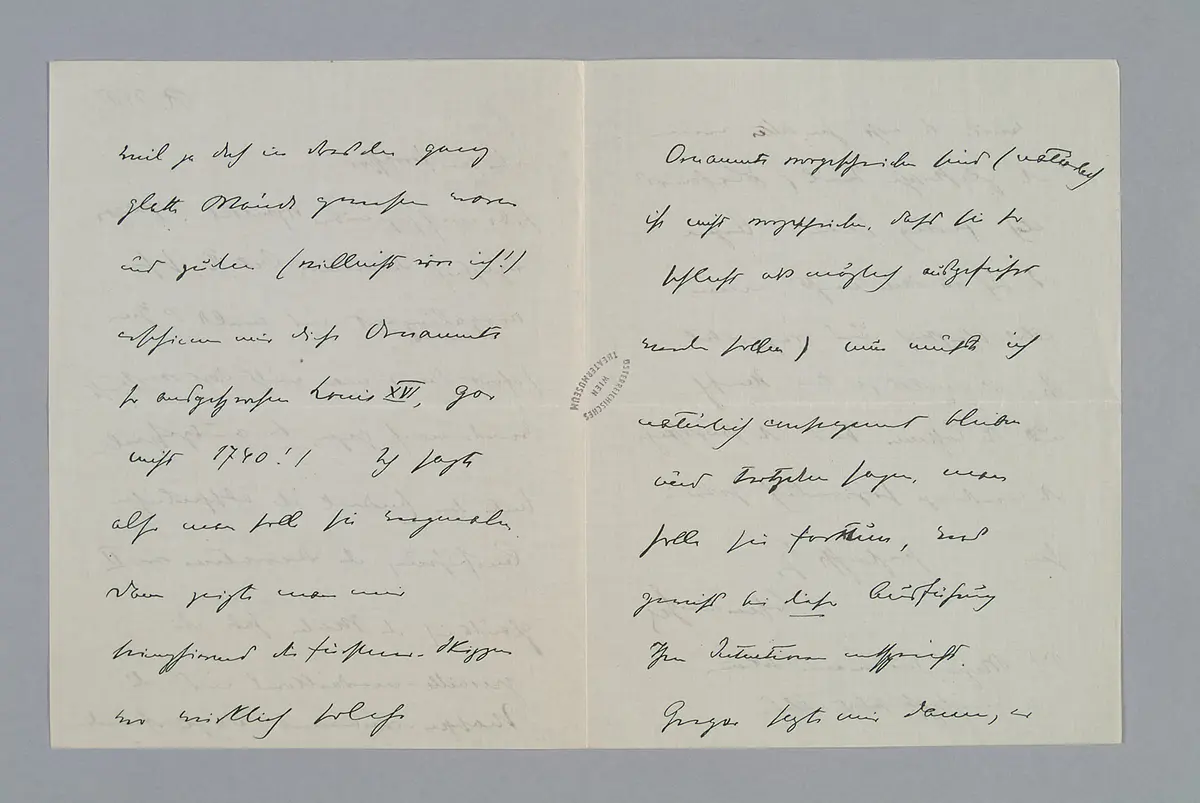 weil ja doch in Dresden ganz
glatte Wände gewesen waren
und zudem (vielleicht irre ich!)
erschienen mir diese Ornamente
so ausgesprochen Louis XVI, gar
nicht 1740!! Ich sagte
also man solle sie wegmalen.
Dann zeigte man mir
triumphierend die Fürstner-Skizzen
wo wirklich solche
Ornamente vorgeschrieben sind (natürlich
ist nicht vorgeschrieben, dass sie so
schlecht als möglich ausgeführt
werden sollen) nun musste ich
natürlich consequent bleiben
und trotzdem sagen, man
solle sie forttun, weil
gewiss bei dieser Ausführung
Ihren Intentionen entspricht.
Gregor sagte mir dann, er
ÖSTERREICHISCHES
THEATERMUSEUM
WIEN